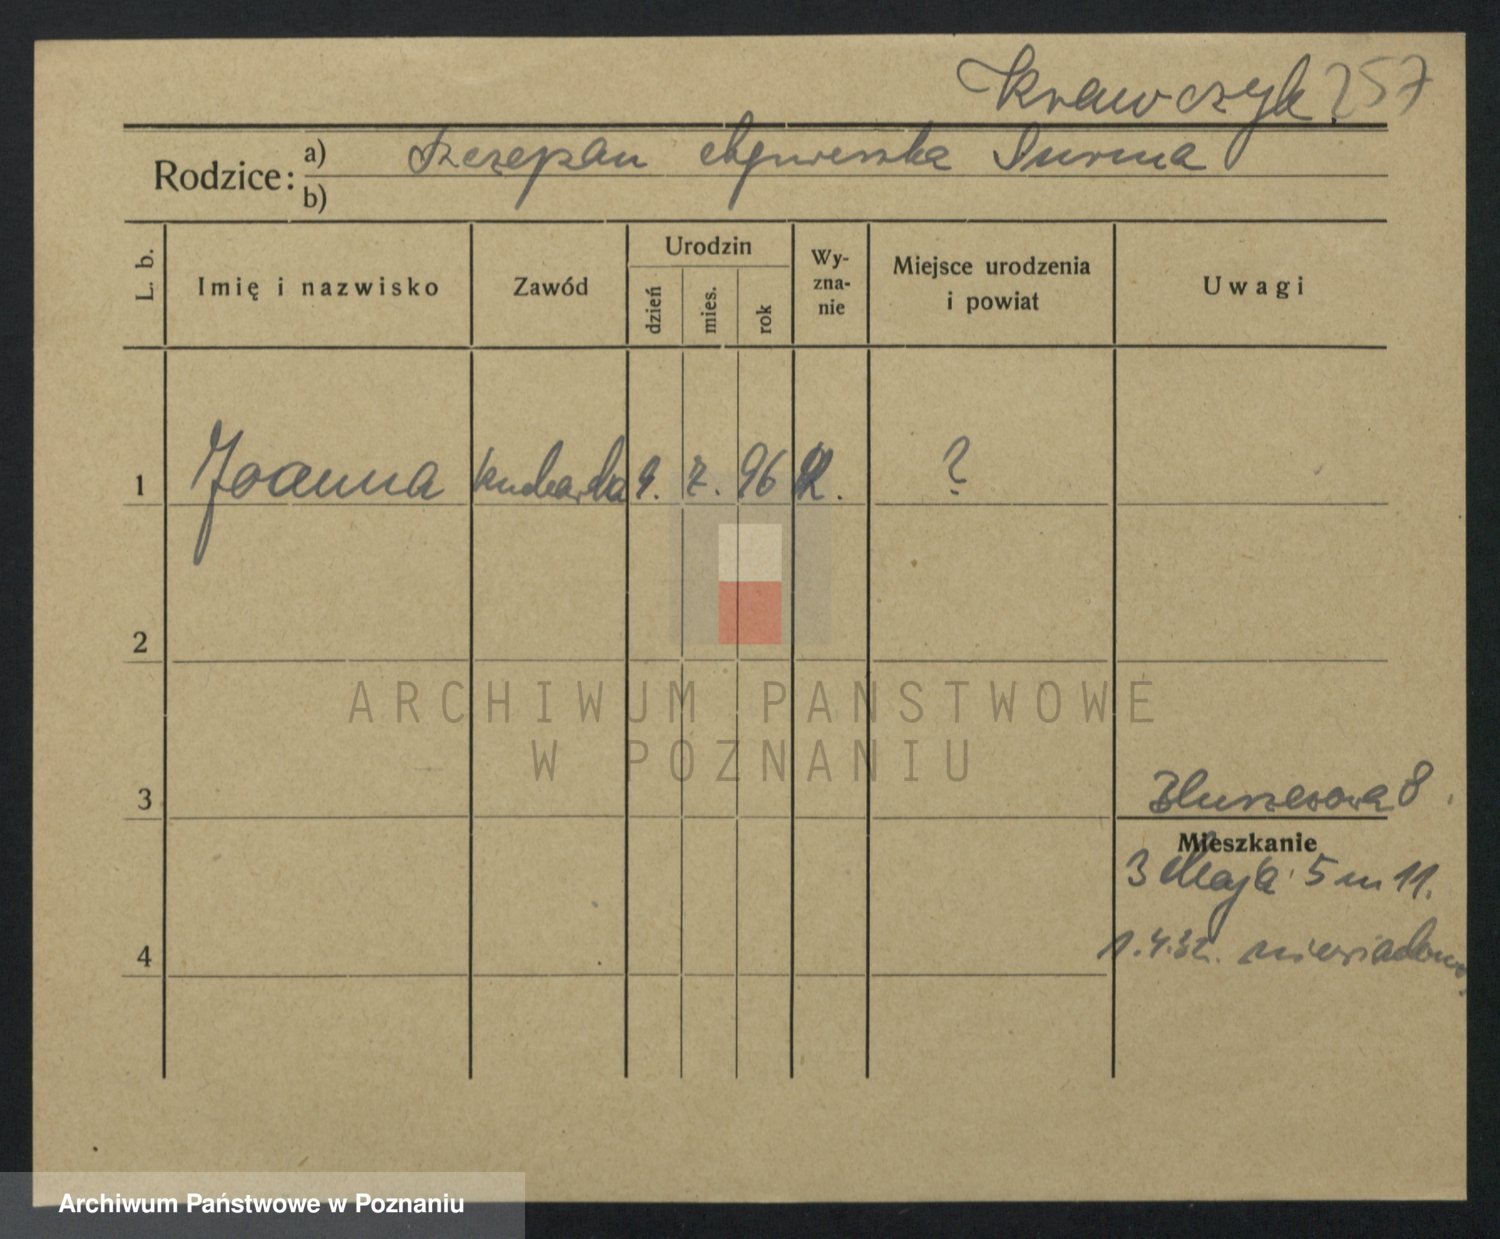 Krawczyk 257
Rodzice: a) Szczepan Agnieszka
b)
L. b.
Imię i nazwisko
Zawód
Urodzin
dzień
mies.
rok
Wy-
zna-
nie
Miejsce urodzenia
i powiat
Uwagi
1 Joanna kucharka 9. 7. 96 ?
2
3
8.
Mieszkanie
3 Maja 5 m 11.
4
1.4.32. niewiadomo
ARCHIWUM PAŃSTWOWE
W POZNANIU
Archiwum Państwowe w Poznaniu